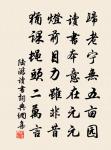 歸老寧無五畝園
讀書本意在元元
燈前目力雖非昔
猶課蠅頭二萬言
陸游讀書詩典網集